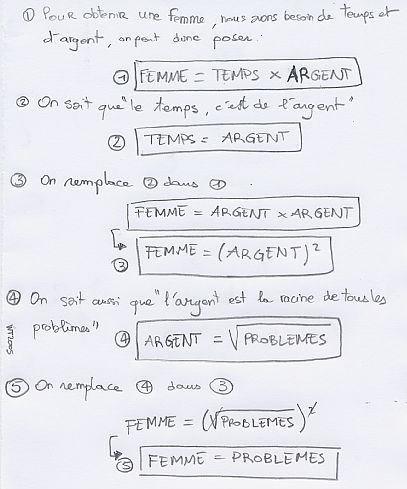 ① Pour obtenir une femme, nous avons besoin de temps et
d'argent, on peut donc poser:
① FEMME = TEMPS × ARGENT
② On sait que "le temps, c'est de l'argent"
② TEMPS = ARGENT
③ On remplace ② dans ①
FEMME = ARGENT × ARGENT
③ FEMME = (ARGENT)²
④ On sait aussi que "l'argent est la racine de tous les
problèmes"
④ ARGENT = √PROBLEMES
⑤ On remplace ④ dans ③
FEMME = (√PROBLEMES)²
⑤ FEMME = PROBLEMES